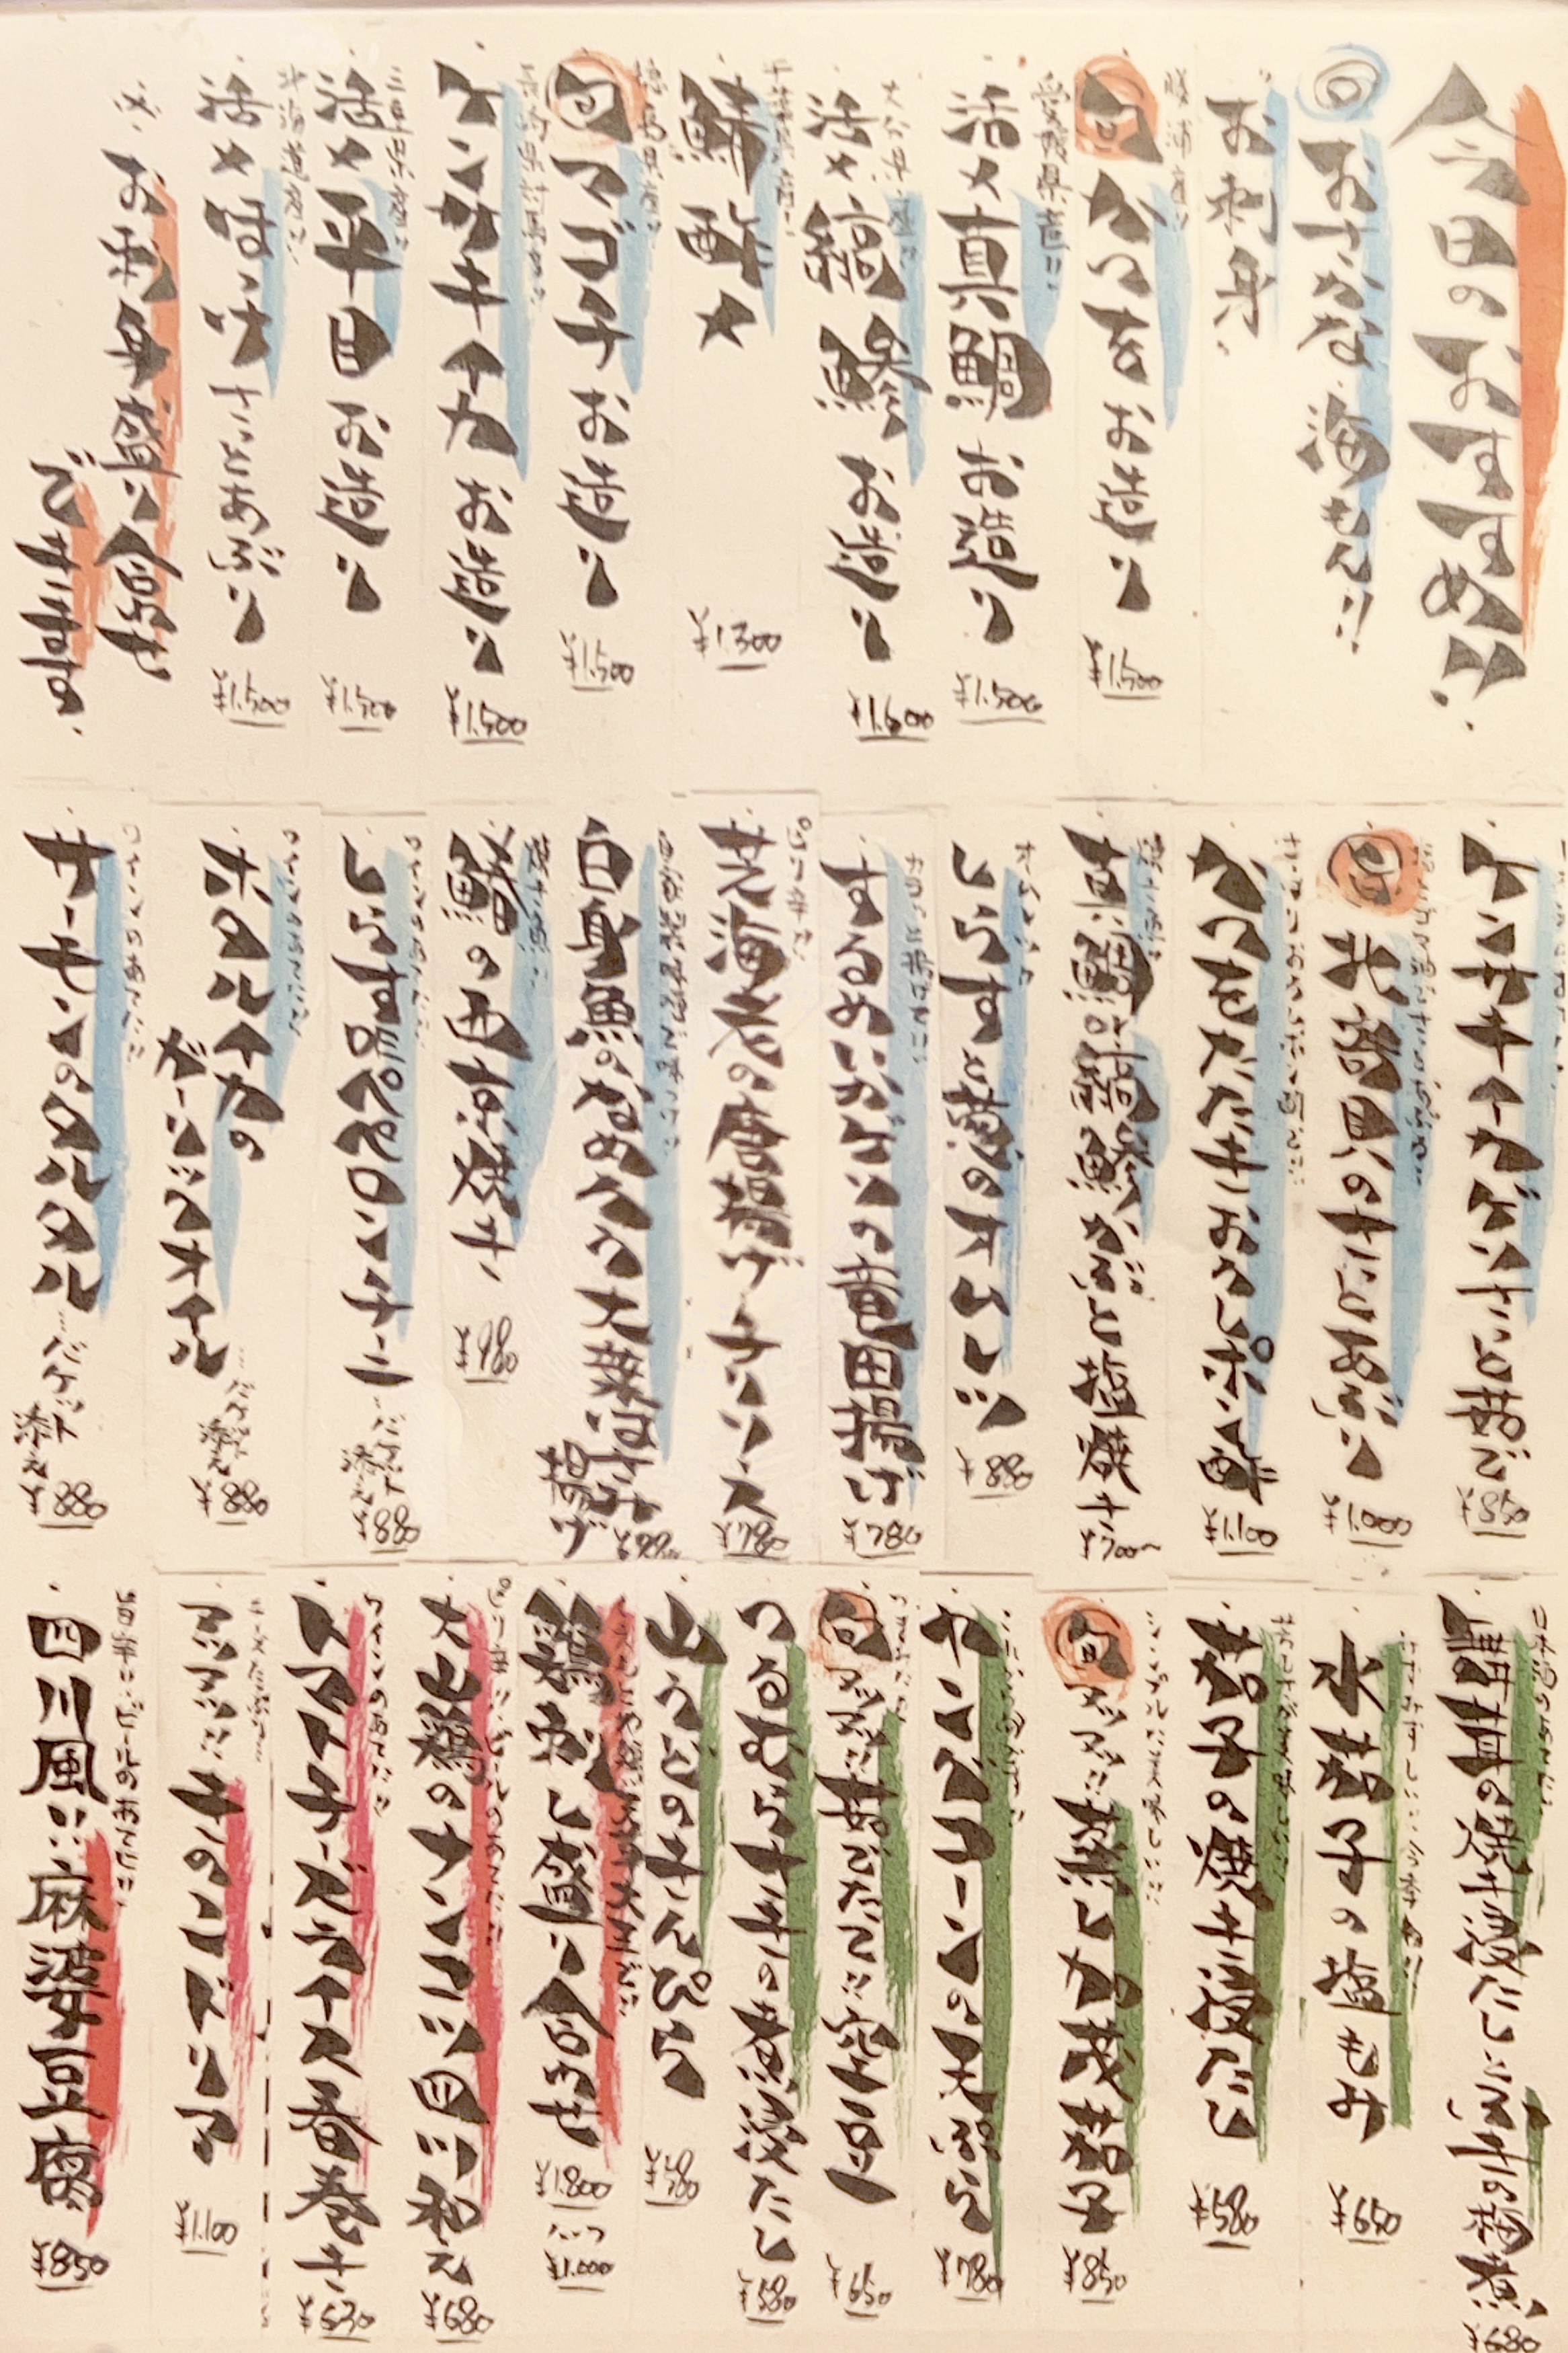 今日のおすすめ!!
おさかな 海もん!!
お刺身
勝浦産!!
旬 かつを お造り
¥1.500
愛媛県産!!
活〆真鯛 お造り
¥1.500
大分県産!!
活〆縞鯵 お造り
¥1.600
千葉県産!!
鯖 酢〆
¥1.300
徳島県産!!
旬 マゴチ お造り
¥1.500
ケンサキイカ お造り
¥1.500
三重県産!!
活〆平目 お造り
¥1.500
北海道産!!
活〆ほっけ さっとあぶり
¥1.500
お刺身盛り合せ
できます。
ケンサキイカゲソ さっと茹で
¥850
旬 北寄貝のさっとあぶり
¥1.000
かつをたたき おろしポン酢
¥1.100
真鯛or縞鯵かぶと塩焼き
¥700〜
しらすと葱のオムレツ
¥880
カラッと揚げて!!
するめいかゲソの竜田揚げ
¥780
ぴり辛!!
芝海老の唐揚げチリソース
¥780
白身魚のなめろう大葉はさみ
揚げ
鰆の西京焼き
¥980
ワインのあてに!!
しらすペペロンチーニ
バケット
添え
¥880
ワインのあてに!!
ホタルイカの
ガーリックオイル
バケット
添え
¥880
ワインのあてに!!
サーモンのタルタル
バケット
添え
¥880
日本酒のあてに!!
舞茸の焼き浸たし
¥680
水茄子の塩もみ
¥650
茄子の焼き浸たし
¥580
シンプルに美味しい!!
旬 アツアツ!! 蒸し加茂茄子
¥850
ヤングコーンの天ぷら
¥780
旬 アツアツ!! 茹でたて!! 空豆
¥650
つるむらさきの煮浸たし
¥580
山うどのきんぴら
¥780
鶏刺し盛り合わせ
¥1.800
ハーフ
¥1.000
ぴり辛!! ビールのあてに!!
大山鶏のナンコツ四川和え
¥680
ワインのあてに!!
トマトチーズライス春巻き
¥630
チーズたっぷり!!
アツアツ!! きのこドリア
¥1.100
旨辛い!! ビールのあてに!!
四川風!! 麻婆豆腐
¥850